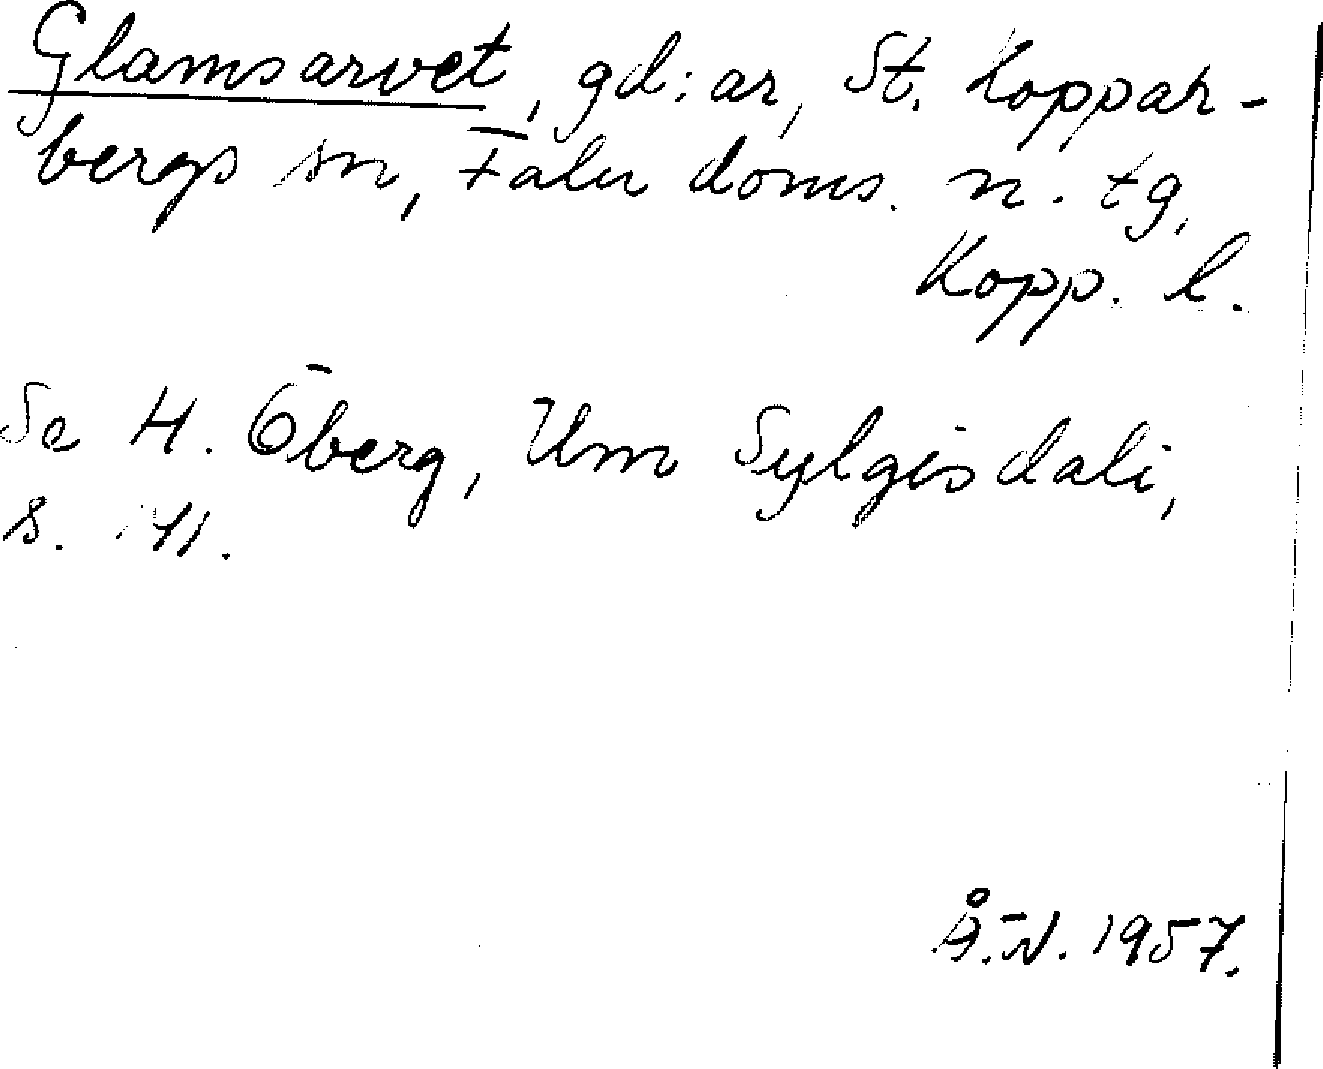 Glamsarvet, gd:ar, St. Koppar-
bergs sn, Falu doms. n. tg,
Kopp. l.
Se H. Öberg, Um Sylgisdali,
s.
Å.N. 1957.